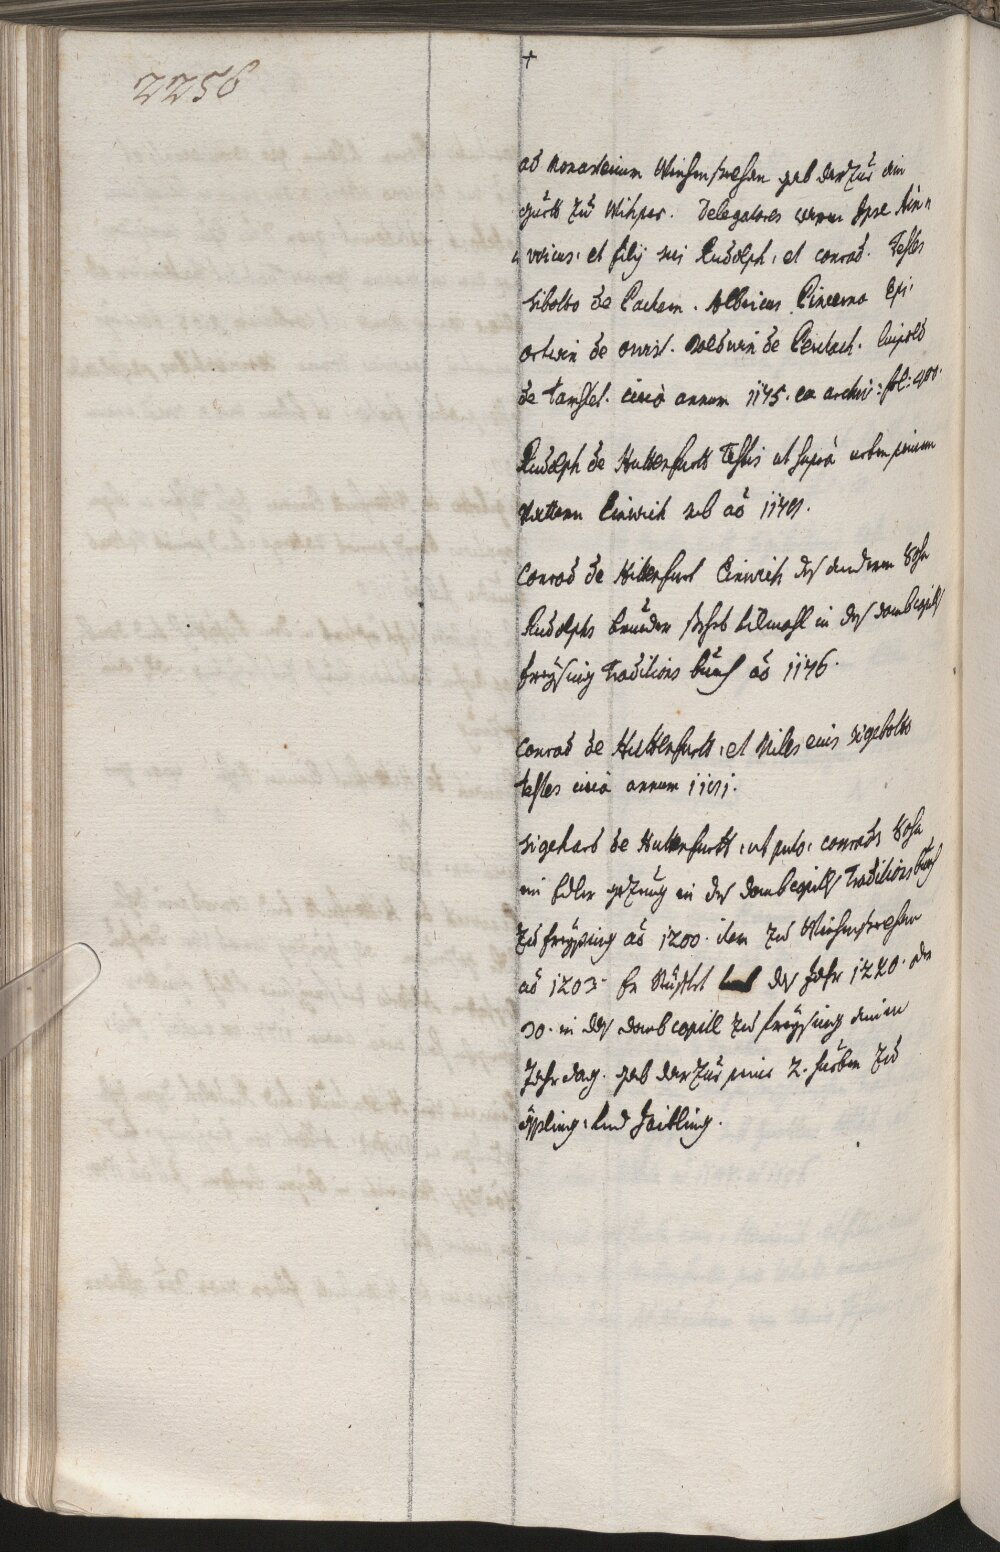 2256
+
ad Monasterium Weihenstephan gab darzue ein
guett zu Mihper. Delegatores ipse Ain
ricus, et filij sui Rudolph, et conrad. Testes
Siboldo de Cachem. Albricus Pincerna Epi.
ortwin de . Baldwin de Perlach. Luipold
de tanstet. circa annum 1145. ex archiv: fol: 400.
Rudolph de Huttenfurtt Testis ut supra
Vattern Einwich sub aö 1149.
Conrad de Hittenfurt Einwich des anderen Sohn
Rudolphs brueder stehet bilmahl in des dombcapitl
freysing Traditions buech aö 1146.
Conrad de Huttenfurtt, et Miles eius Sigeboldo
testes circa annum 1151.
Sigehard de Huttenfurtt, ut puto, conrads Sohn
ein Edler gezeug in des dombcapitls Traditions buech
zu freysing aö 1200. item zu Weihenstephan
aö 1203. Er stifftet das Jahr 1220. oder
30. in des dombcapitl zu freysing einen
Jahrdag. gab darzue seine 2. hueben zu
äppling, und haibling.